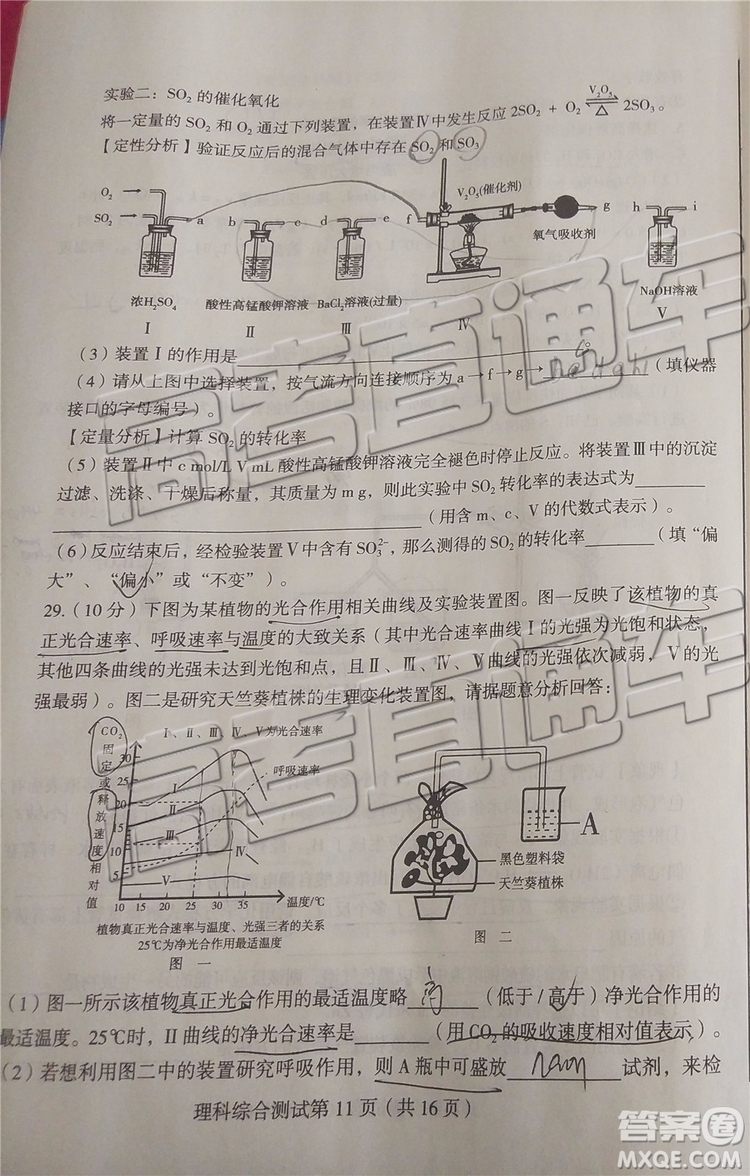 实验二：SO₂ 的催化氧化
将一定量的 SO₂ 和 O₂ 通过下列装置，在装置Ⅳ中发生反应 2SO₂ + O₂ ⇌ 2SO₃。
V₂O₅
△
【定性分析】验证反应后的混合气体中存在 SO₂ 和 SO₃
O₂
SO₂
a b c d e f g h i
V₂O₅(催化剂)
氧气吸收剂
浓H₂SO₄ 酸性高锰酸钾溶液 BaCl₂溶液(过量) NaOH溶液
Ⅰ Ⅱ Ⅲ Ⅳ Ⅴ
（3）装置Ⅰ的作用是
（4）请从上图中选择装置，按气流方向连接顺序为 a→f→g→（填仪器
接口的字母编号）。
【定量分析】计算 SO₂ 的转化率
（5）装置Ⅱ中 c mol/L V mL 酸性高锰酸钾溶液完全褪色时停止反应。将装置Ⅲ中的沉淀
过滤、洗涤、干燥后称量，其质量为 m g，则此实验中 SO₂ 转化率的表达式为
（用含 m、c、V 的代数式表示）。
（6）反应结束后，经检验装置Ⅴ中含有 SO₃²⁻，那么测得的 SO₂ 的转化率（填“偏
大”、“偏小”或“不变”）。
29.（10 分）下图为某植物的光合作用相关曲线及实验装置图。图一反映了该植物的真
正光合速率、呼吸速率与温度的大致关系（其中光合速率曲线Ⅰ的光强为光饱和状态，
其他四条曲线的光强未达到光饱和点，且Ⅱ、Ⅲ、Ⅳ、Ⅴ的光强依次减弱，Ⅴ的光
强最弱）。图二是研究天竺葵植株的生理变化装置图，请据题意分析回答：
CO₂固定或释放速度相对值
Ⅰ、Ⅱ、Ⅲ、Ⅳ、Ⅴ为光合速率
呼吸速率
30
25
20
15
10
5
Ⅰ
Ⅱ
Ⅲ
Ⅳ
Ⅴ
10 15 20 25 30 35 温度/℃
植物真正光合速率与温度、光强三者的关系
25℃为净光合作用最适温度
图 一
A
黑色塑料袋
天竺葵植株
图 二
（1）图一所示该植物真正光合作用的最适温度略 高 （低于/高于）净光合作用的
最适温度。25℃时，Ⅱ曲线的净光合速率是（用CO₂的吸收速度相对值表示）。
（2）若想利用图二中的装置研究呼吸作用，则 A 瓶中可盛放试剂，来检
理科综合测试第 11 页（共 16 页）
高考直通车
高考直通车
答案圈
MXQE.COM